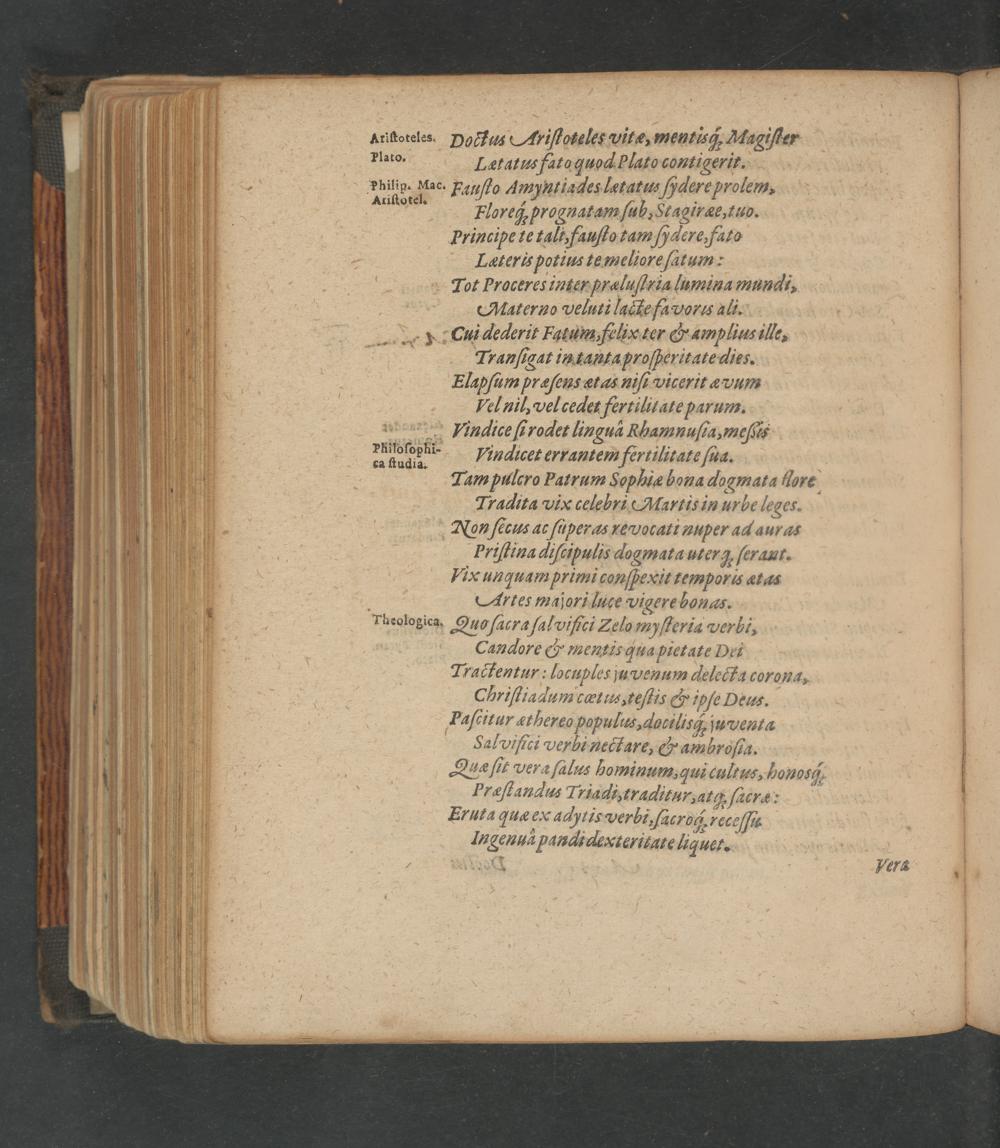 Ariſtoteles. Doctus Ariſtoteles vitæ, mentisq́; Magiſter
Plato. Lætatus fato quod Plato contigerit.
Philip. Mac. Fauſto Amyntiades lætatus ſydere prolem,
Ariſtotel. Floreq́; prognatam ſub, Stagiræ, tuo.
Principe te tali, fauſto tam ſydere, fato
Læteris potius te meliore ſatum:
Tot Proceres inter præluſtria lumina mundi,
Materno veluti lacte favoris ali.
Cui dederit Fatum, felix ter & amplius ille,
Tranſigat in tanta proſperitate dies.
Elapſum præſens ætas niſi vicerit ævum
Vel nil, vel cedet fertilitate parum.
Vindice ſi rodet linguâ Rhamnuſia, meſſis
Philoſophi-
ca ſtudia. Vindicet errantem fertilitate ſua.
Tam pulcro Patrum Sophiæ bona dogmata flore
Tradita vix celebri Martis in urbe leges.
Non ſecus ac ſuperas revocati nuper ad auras
Priſtina diſcipulis dogmata uterq; ferant.
Vix unquam primi conſpexit temporis ætas
Artes majori luce vigere bonas.
Theologica. Quo ſacra ſalvifici Zelo myſteria verbi,
Candore & mentis qua pietate Dei
Tractentur: locuples juvenum delecta corona,
Chriſtiadum cœtus, teſtis & ipſe Deus.
Paſcitur æthereo populus, docilisq́; juventa
Salvifici verbi nectare, & ambroſia.
Quæ ſit vera ſalus hominum, qui cultus, honosq́;
Præſtandus Triadi, traditur, atq; ſacræ:
Eruta quæ ex adytis verbi, ſacroq́; receſſu
Ingenuâ pandi dexteritate liquet.
Vera